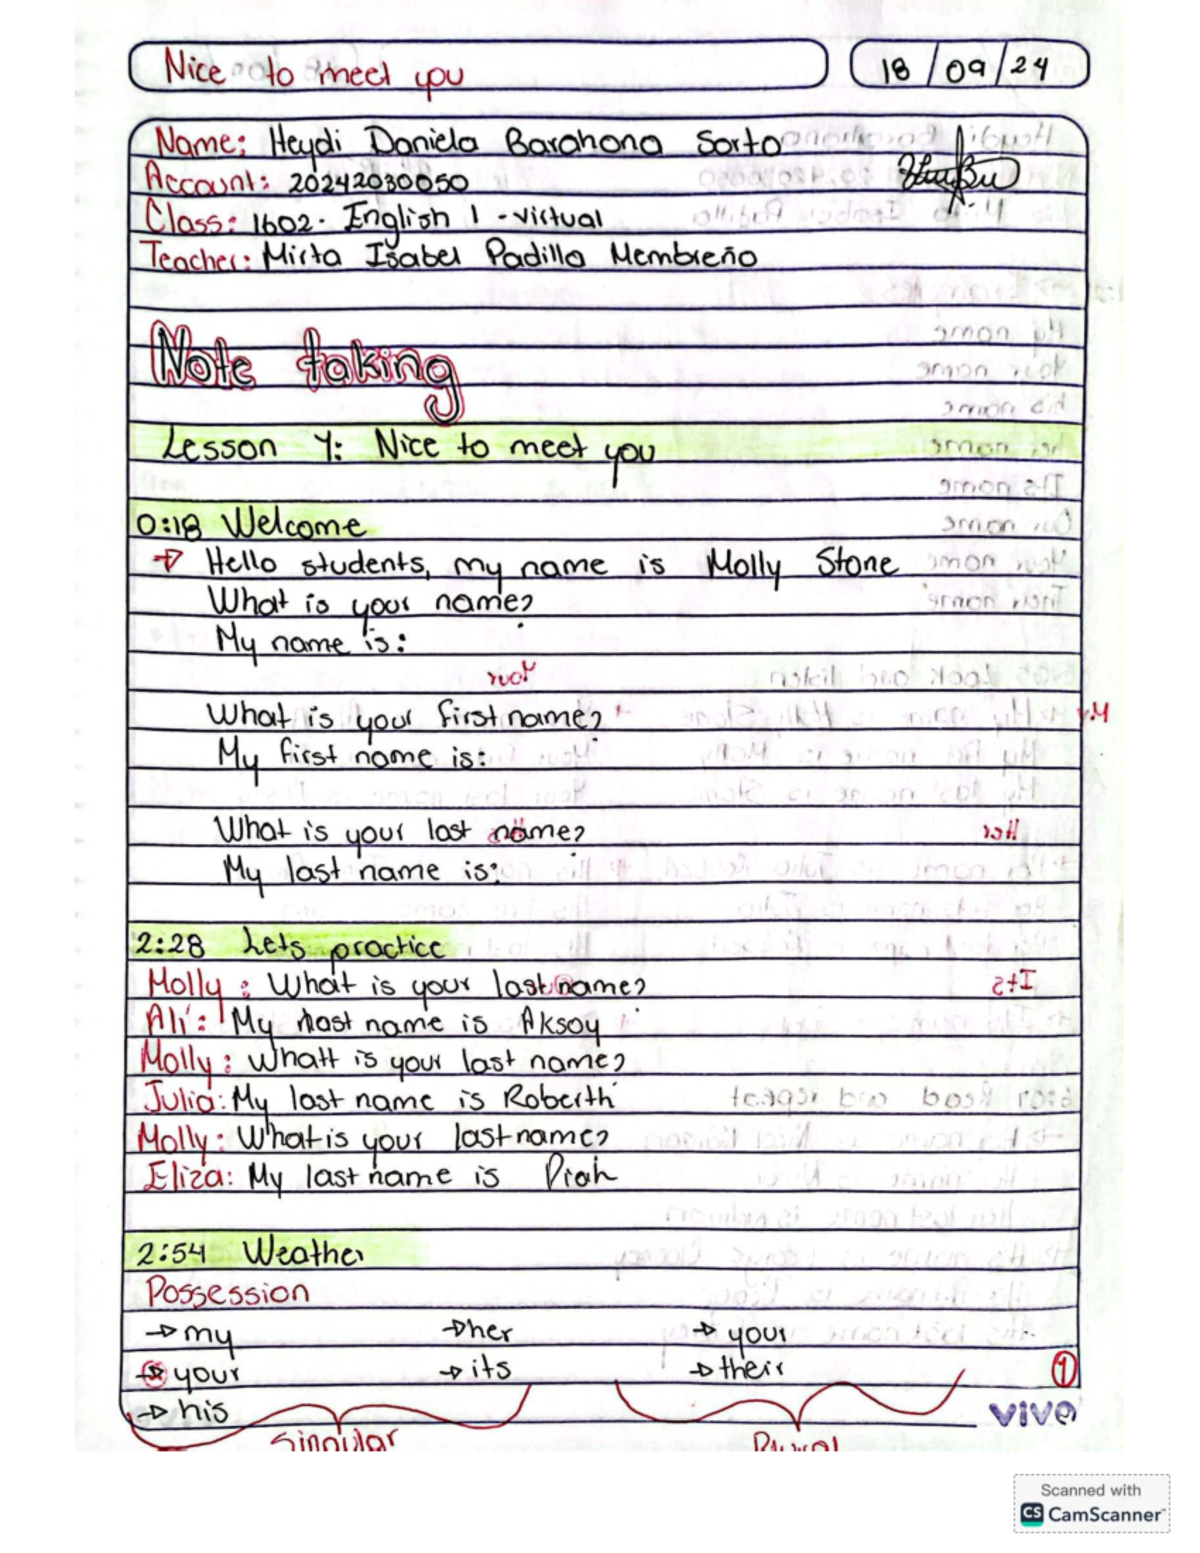 Nice to meet you
18/09/24
Name: Heydi Daniela Barahona Sorto
Account: 20242030050
Class: 1602- English 1 - virtual
Teacher: Mirta Isabel Padilla Membreño
Note taking
Lesson 1: Nice to meet you
0:18 Welcome
→ Hello students, my name is Molly Stone
What is your name?
My name is:
What is your first name?
My first name is:
What is your last name?
My last name is:
2:28 Lets practice
Molly: What is your last name?
Ali: My last name is Aksoy
Molly: What is your last name?
Julia: My last name is Roberth
Molly: What is your last name?
Eliza: My last name is
2:54 Weather
Possession
→ my → her → your
→ your → its → their
→ his
Singular Plural
1
vive
Scanned with
CS CamScanner